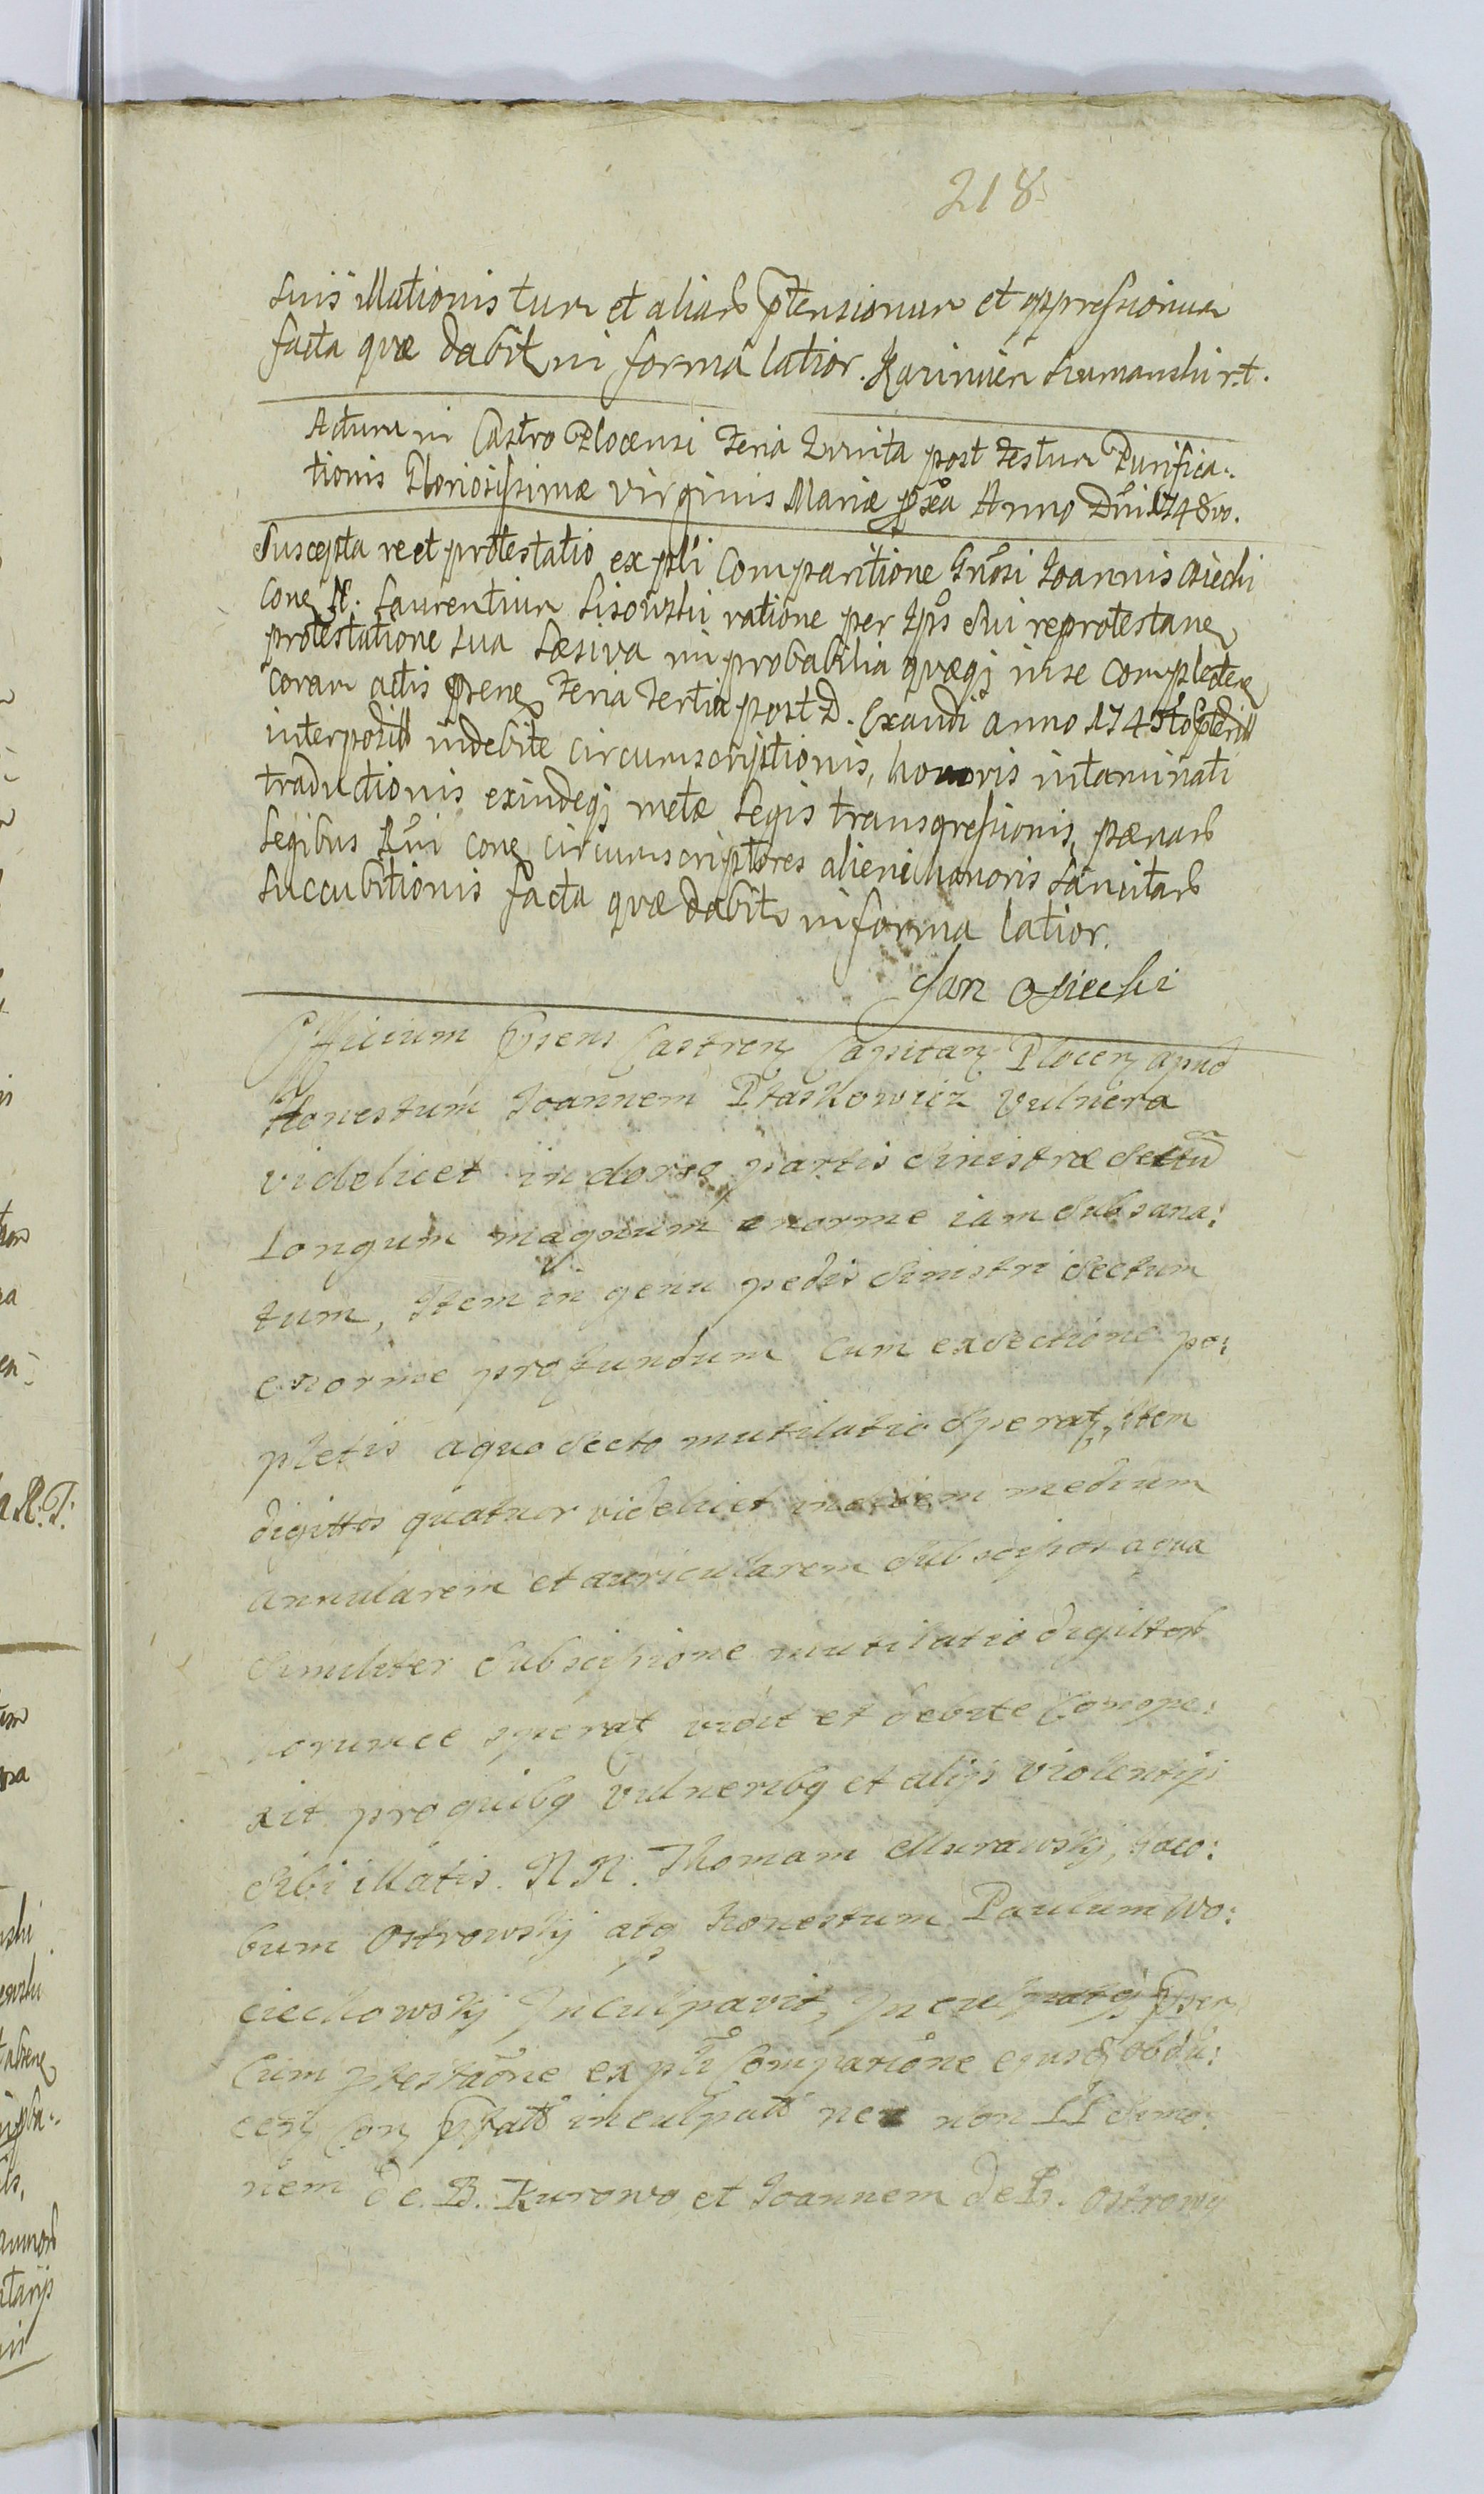 218
suis illationis tum et aliarb ptensionum et oppressionum
facta quæ dabit in forma latior. Kazimierz Szumanski r.t.
Actum in Castro Plocensi Feria Quinta post Festum Purifica:
tionis Gloriosissimæ Virginis Mariæ pxa Anno Dni 1748vo.
Suscepta reet protestatio ex psli Comparitione Gnosi Joannis Osiecki
Con. N. Laurentium Lisowski ratione per Ips Sui reprotestanę
protestatione sua Læsiva improbabilia quæq; in se complectenę
coram actis psenę Feria Tertia post D. Exaudi anno 174
interposit indebite circumscriptionis, honoris intaminati
traductionis exindeq; metæ Legis transgressionis, pænarb
Legibus Rni Conę circumscriptores alieni honoris sancitarb
succubitionis facta quæ dabit in forma latior.
Jan Osiecki
Officium Psens Castreną Capitaną Plocenę apud
Honestum Joannem Ptaskowicz Vulnera
videlicet in dorso partis Sinistræ Sectū
Longum magnum enorme iam Subsana:
tum, Item in genu pedis Sinistri Sectum
enorme profundum Cum exsectione po:
pletis a quo secto mutilatio sperat, Item
digittos quatuor videlicet indicem medium
annularem et auricularem Subscissos a qua
Similiter Subscissione mutilatio digittorb
horumce sperat vidit et debite Conspe:
xit pro quibq Vulneribq et alijs violentijs
Sibi illatis. N N. Thomam Murawskij, Jaco:
bum Ostrowskij atq honestum Paulum Wo:
ciechowskij Inculpavit,
Cum ptestaõne ex psli Comparitõne ejusd obdu:
cenę Conę pfatt inculpatt nec non Simo:
nem de B. Kurowo et Joannem de B. Ostrowy